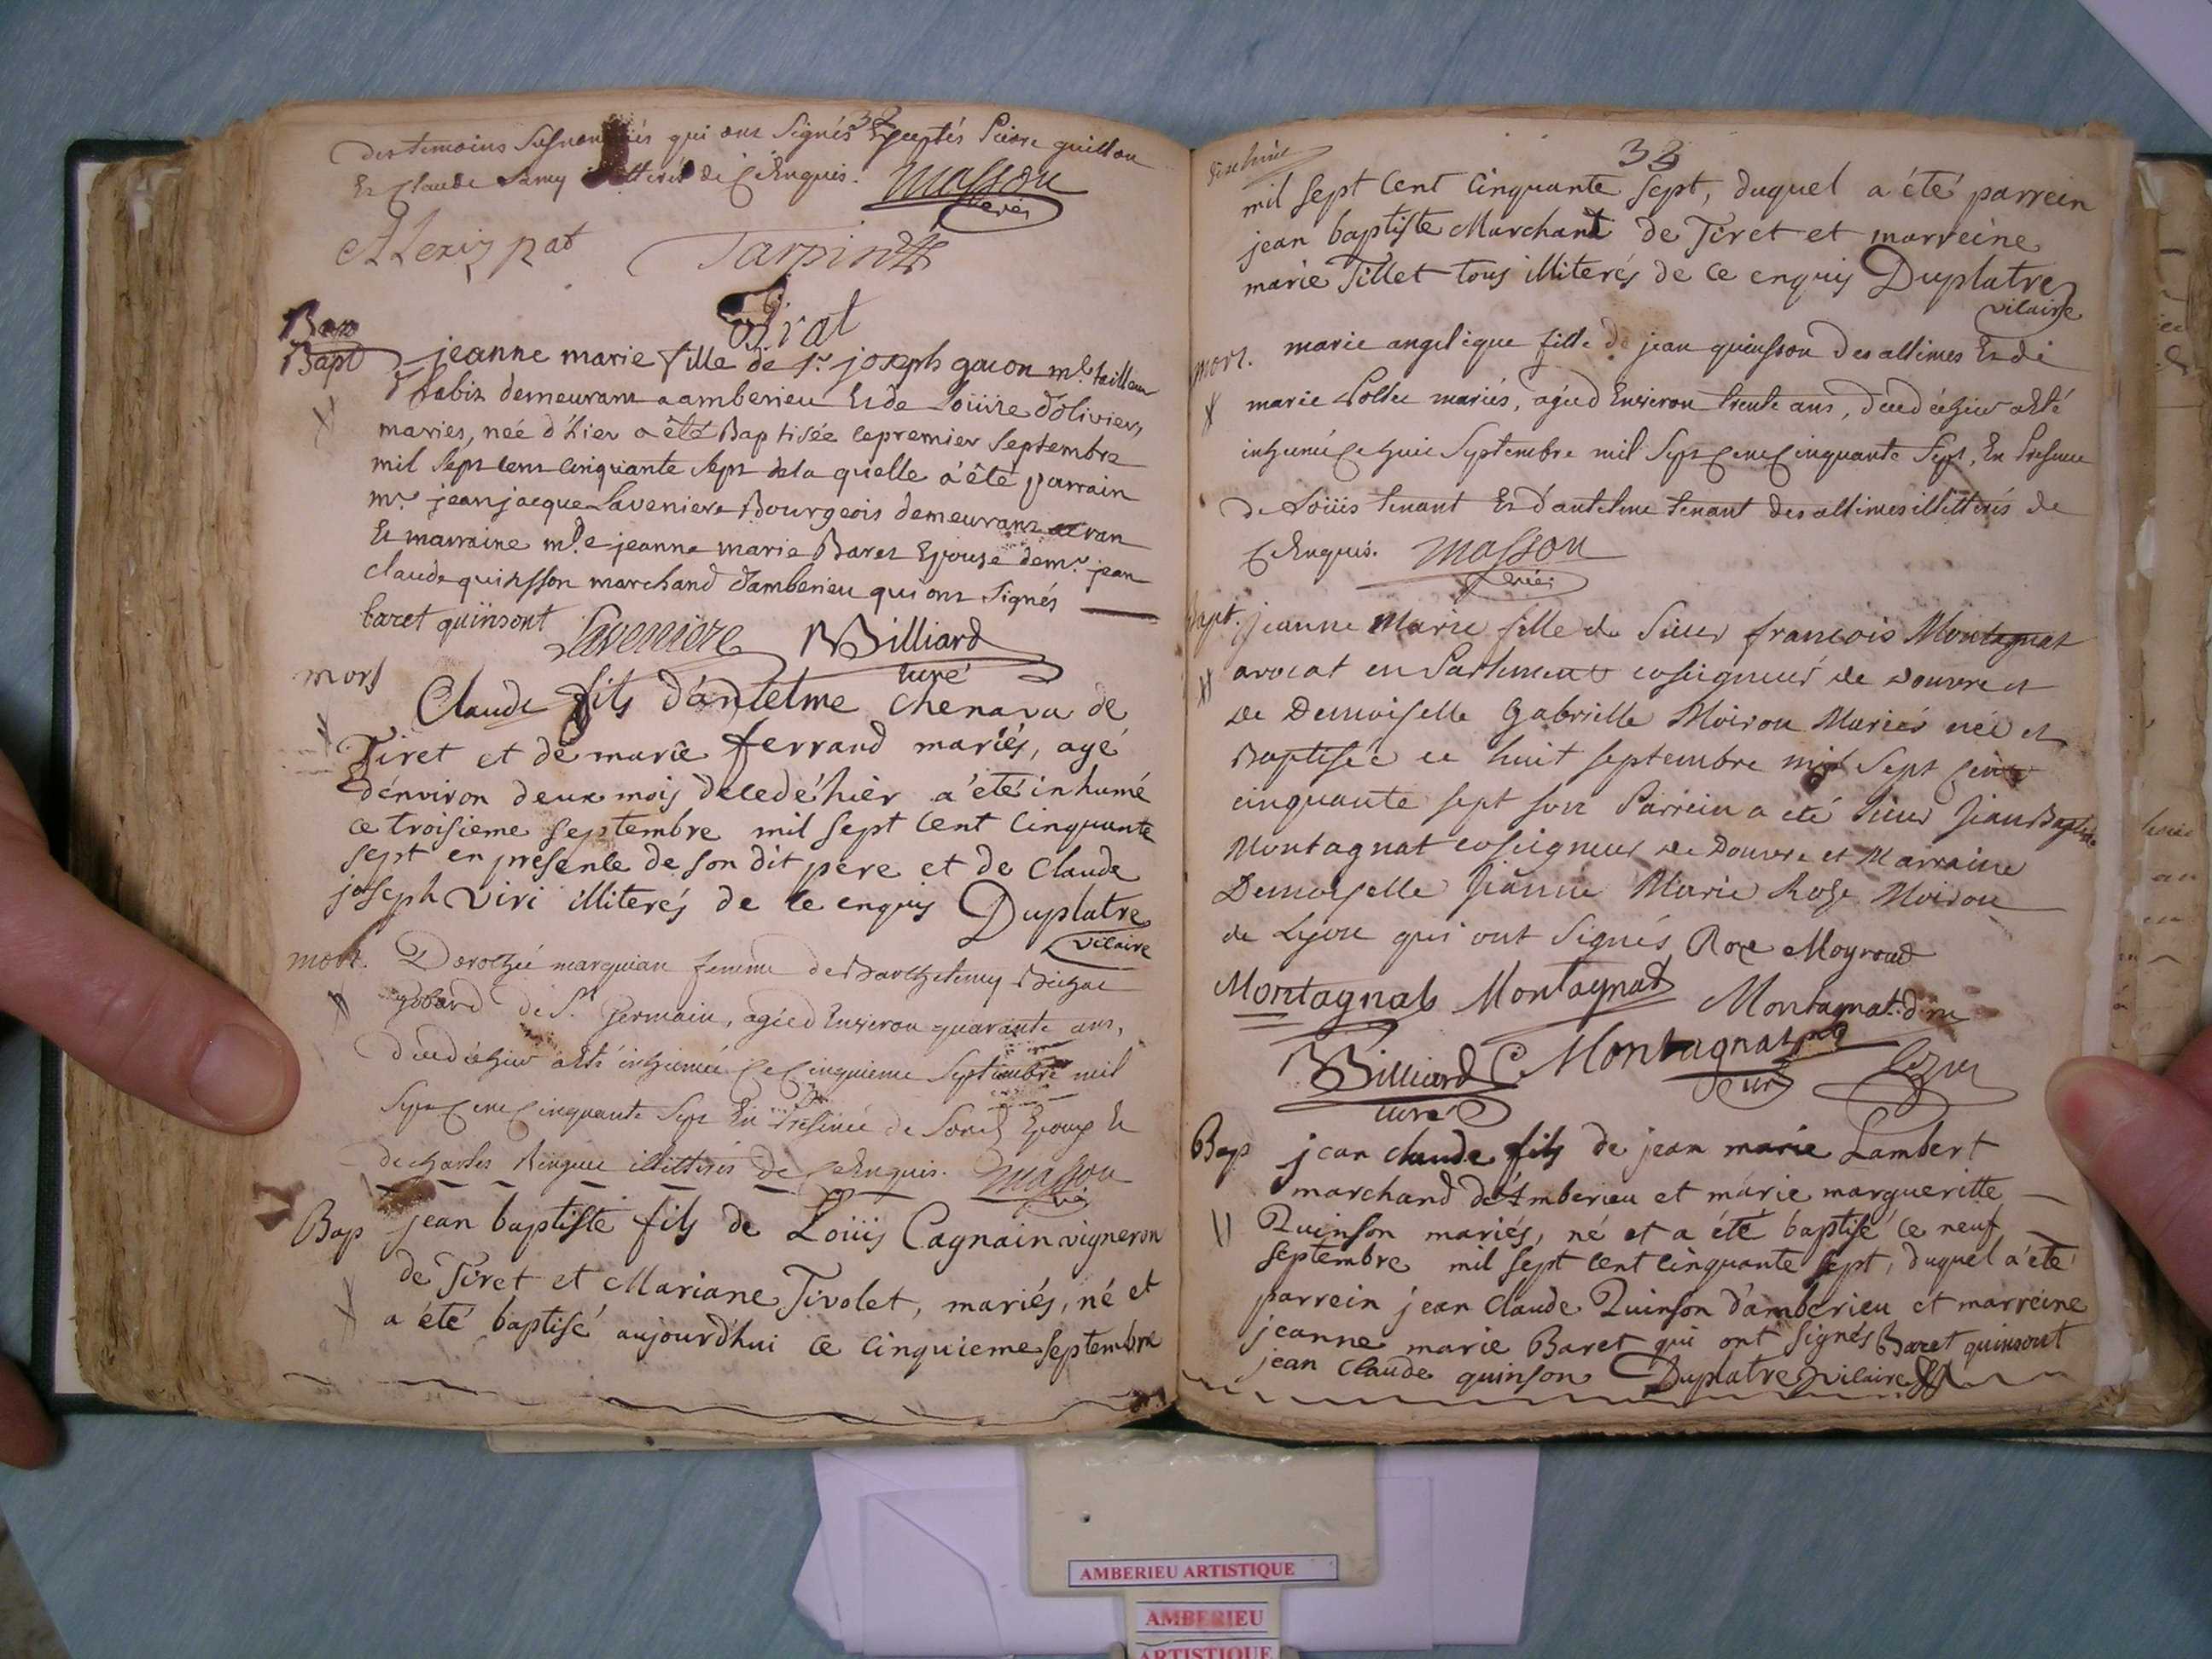 32
des temoins susnommés qui ont signés Exceptés Pierre guillon
Et Claude Lamy illitterés de ce Enquis. Masson
vic.
Alexis pat Tarpin
Birat
Bap
Bapt jeanne marie fille de sr. joseph gacon me. tailleur
d'habits demeurant a amberieu Et de Loüise d'olivier,
mariés, née d'hier a été Baptisée le premier Septembre
mil Sept cent Cinquante Sept de la quelle a été parrain
mr. jean jacque Laveniere Bourgeois demeurant a van
Et marraine mde. jeanne marie Baret Epouse de mr. jean
claude quinsson marchand d'amberieu qui ont Signés
baret quinsont Laveniere Billiard
curé
mort
Claude fils d'antelme Chenava de
Tiret et de marie ferrand mariés, agé
d'environ deux mois décedé hier a été inhumé
ce troisieme septembre mil sept cent cinquante
sept en presence de son dit pere et de Claude
joseph Viri illiterés de ce enquis Duplatre
vicaire
mort. Dorothée marguian femme de Barthelemy
gobard de St. Germain, agéed Environ quarante ans,
decedéehier aEté inhumée Ce Cinquieme Septembre mil
Sept Cent Cinquante Sept En Presence de Son Epoux Et
de charles illitterés de Ce Enquis. Masson
vic
Bap jean baptiste fils de Loüis Cagnain vigneron
de Tiret et Mariane Tivolet, mariés, né et
a été baptisé aujourd'hui ce cinquieme septembre
33
mil sept cent cinquante sept, duquel a été parrein
jean baptiste Marchant de Tiret et marreine
marie Tillet tous illiterés de ce enquis Duplatre
vicaire
mort. marie angelique fille de jean quinsson des allimes Et de
marie mariés, agéed Environ trente ans, decedéehier aEté
inhumée Ce huit Septembre mil Sept Cent Cinquante Sept, En Presence
de Loüis tenant Et d'antelme tenant des allimes illitterés de
Ce Enquis. Masson
vic.
Bapt. Jeanne Marie fille de Sieur francois Montagnat
avocat en Parlement coseigneur de Douvre et
de Demoiselle Gabrielle Moiron Mariés née et
Baptisée ce huit septembre mil Sept Cent
cinquante sept son Parrein a eté sieur Jean Baptiste
Montagnat coseigneur de Douvre et Marraine
Demoiselle Jeanne Marie Rose Moiron
de Lyon qui ont signés Roze Moyroud
Montagnat Montagnat Montagnat
Billiard C. Montagnat
curé
Bap jean claude fils de jean marie Lambert
marchand d'Amberieu et marie margueritte
Quinson mariés, né et a été baptisé ce neuf
septembre mil sept cent cinquante sept, duquel a été
parrein jean Claude Quinson d'amberieu et marreine
jeanne marie Baret qui ont signés Baret quinsont
jean Claude quinson Duplatre vicaire
AMBERIEU ARTISTIQUE
AMBERIEU
ARTISTIQUE